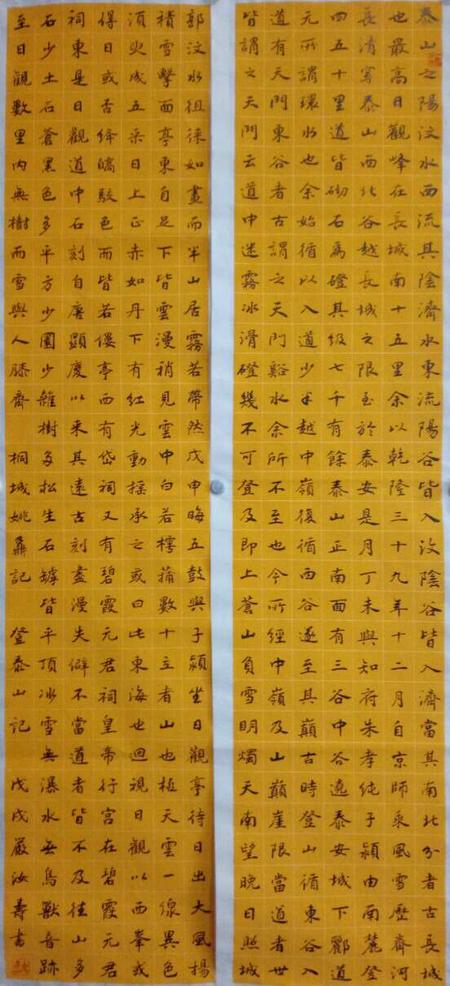 泰山之陽汶水西流其陰濟水東流陽谷皆入汶陰谷皆入濟當其南北分者古長城
也最高日觀峰在長城南十五里余以乾隆三十九年十二月自京師乘風雪歷齊河
長清穿泰山西北谷越長城之限至於泰安是月丁未與知府朱孝純子潁由南麓登
四五十里道皆砌石為磴其級七千有餘泰山正南面有三谷中谷遶泰安城下酈道
元所謂環水也余始循以入道少半越中嶺復循西谷遂至其巔古時登山循東谷入
道有天門東谷者古謂之天門谿水余所不至也今所經中嶺及山巔崖限當道者世
皆謂之天門云道中迷霧冰滑磴幾不可登及即上蒼山負雪明燭天南望晚日照城
郭汶水徂徠如畫而半山居霧若帶然戊申晦五鼓與子潁坐日觀亭待日出大風揚
積雪擊面亭東自足下皆雲漫稍見雲中白若樗蒱數十立者山也極天雲一線異色
須臾成五采日上正赤如丹下有紅光動搖承之或曰此東海也迴視日觀以西峯或
得日或否絳皜駁色而皆若僂亭西有岱祠又有碧霞元君祠皇帝行宮在碧霞元君
祠東是日觀道中石刻自唐顯慶以來其遠古刻盡漫失僻不當道者皆不及往山多
石少土石蒼黑色多平方少圜少雜樹多松生石罅皆平頂冰雪無瀑水無鳥獸音跡
至日觀數里內無樹而雪與人膝齊 桐城姚鼐記 登泰山記 戊戌嚴汝壽書